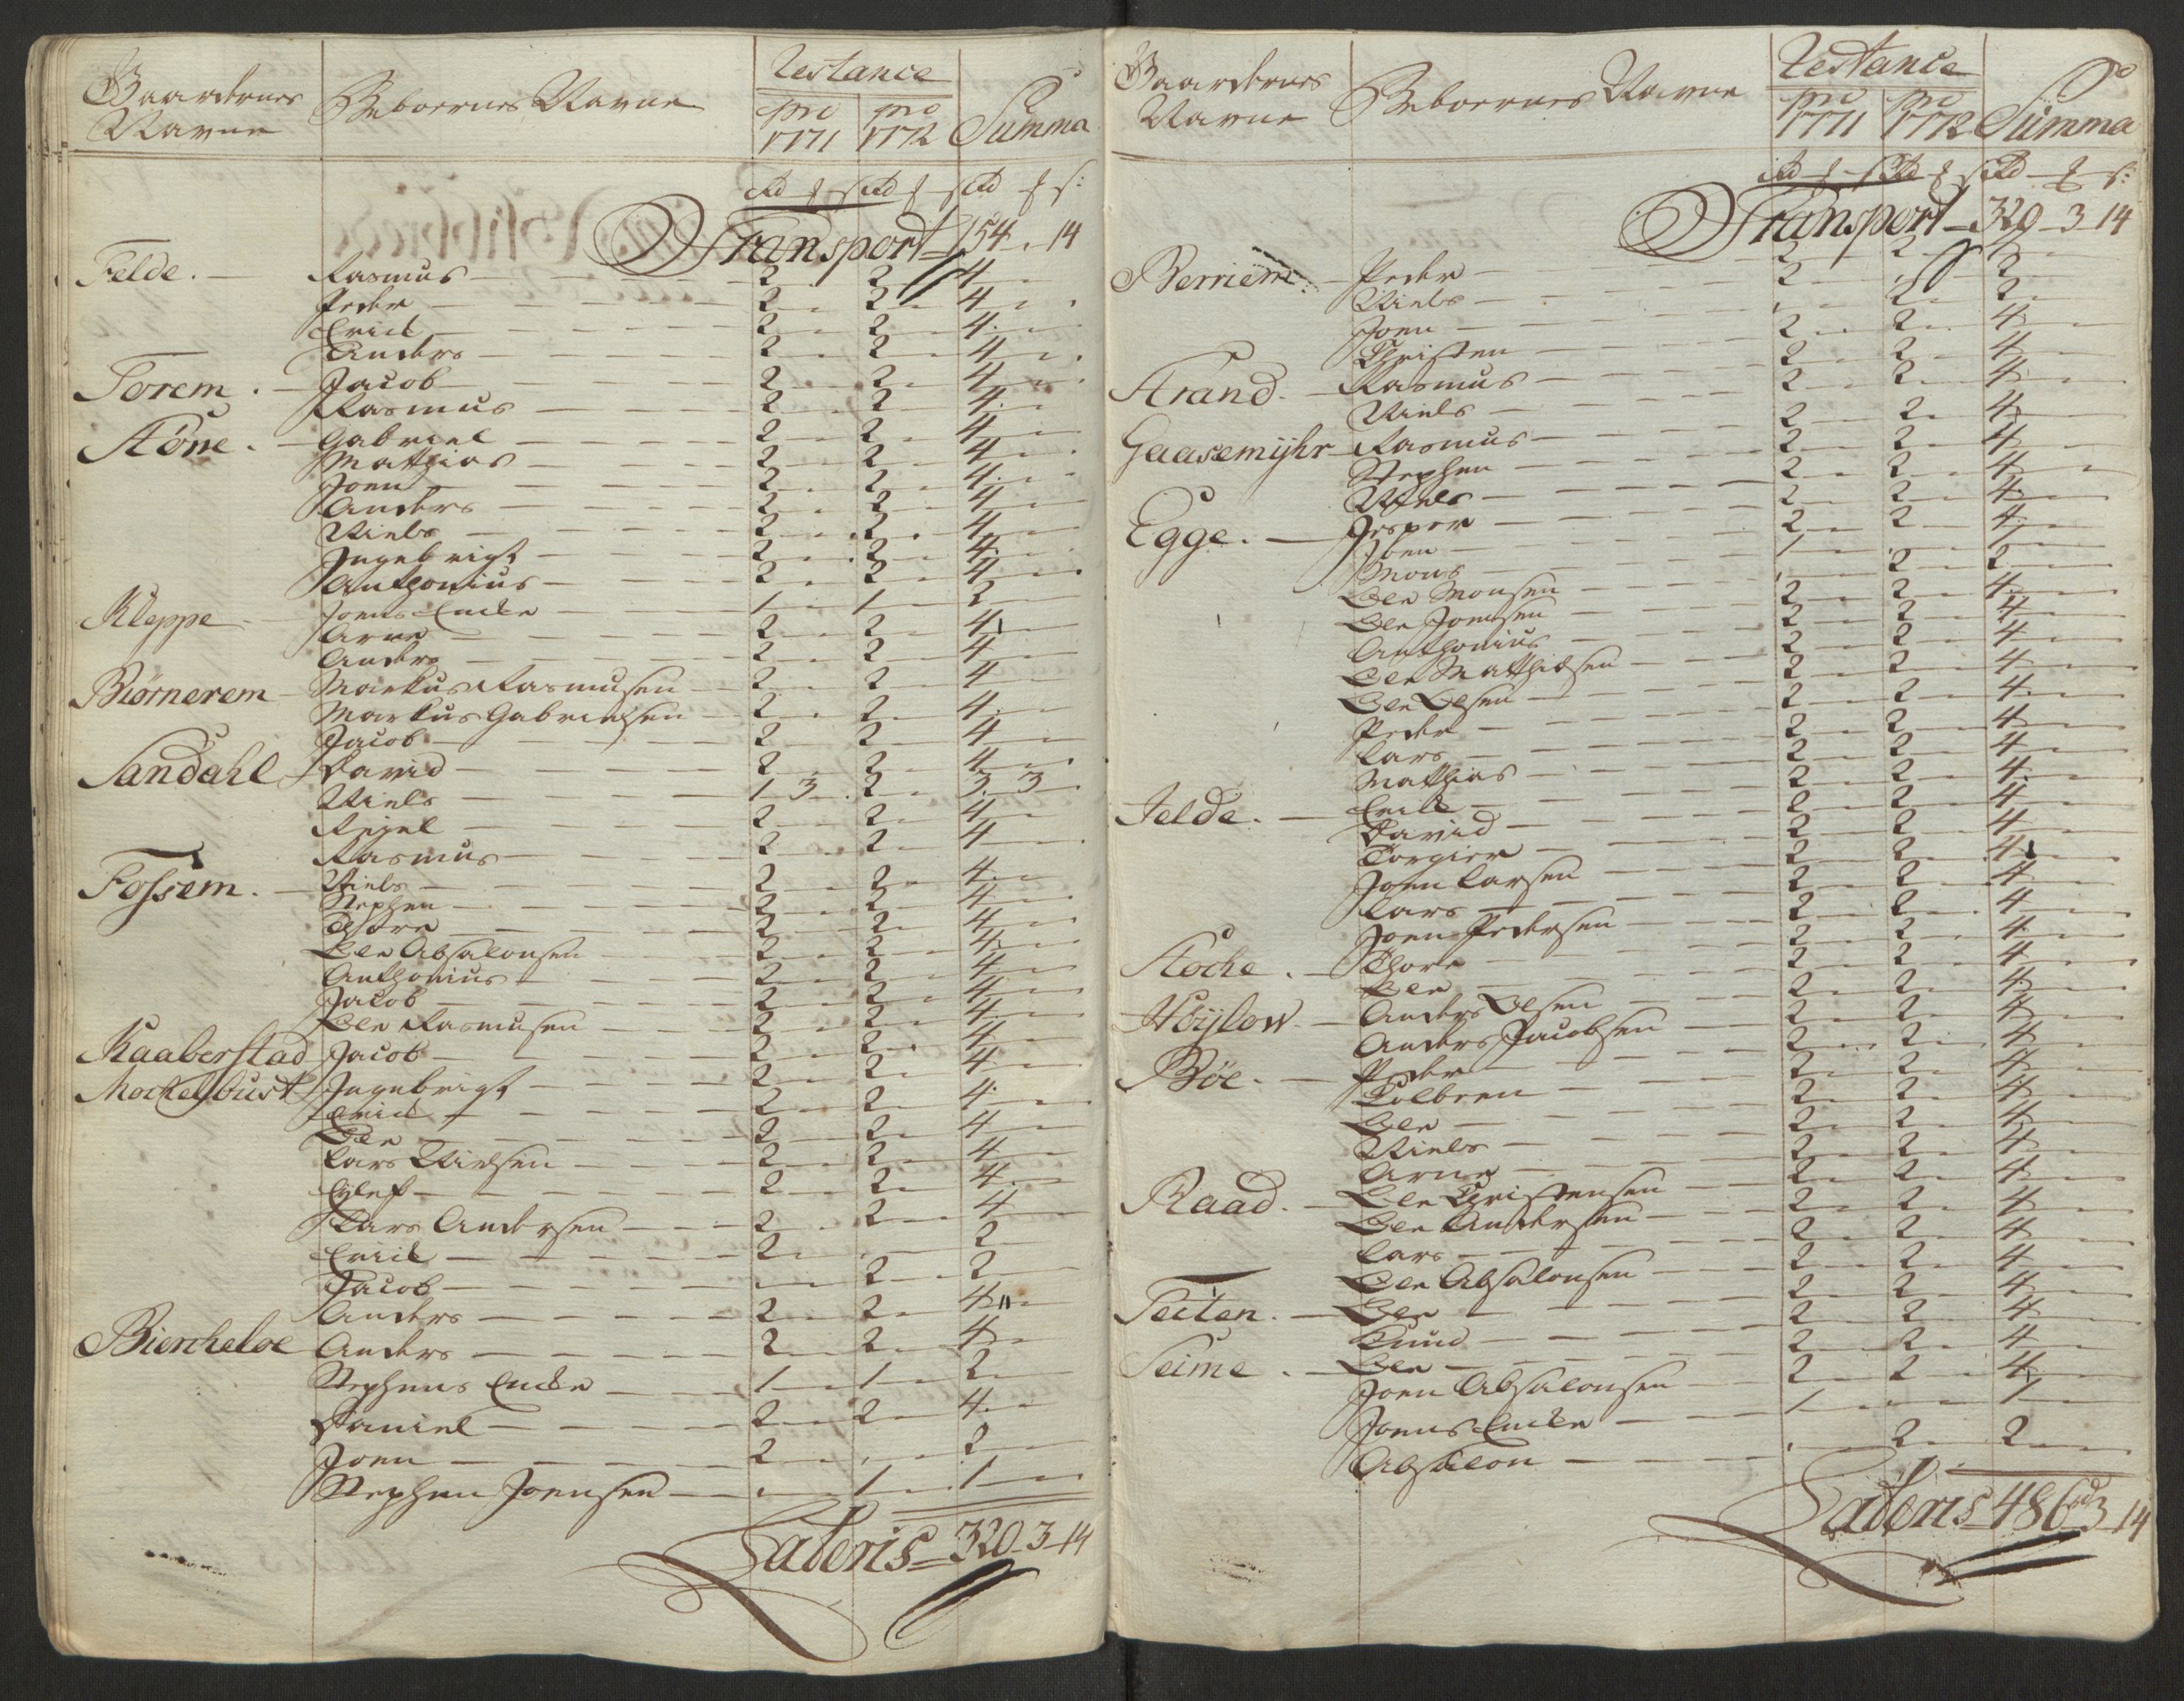 Gaardernes Navne Beboernes Navne Restance pro 1771 pro 1772 Summa
rd ƒ s rd ƒ s rd ƒ s:
Transport 154 . 14
Felde. Rasmus 2 2 4
Peder 2 2 4
Erick 2 2 4
Anders 2 2 4
Torem. Jacob 2 2 4
Rasmus 2 2 4
Gabriel 2 2 4
Matthias 2 2 4
Joen 2 2 4
Anders 2 2 4
Niels 2 2 4
Ingebrigt 2 2 4
Anthonius 2 2 4
Kleppe Joens Encke 1 1 2
Arne 2 2 4
Anders 2 2 4
Biørnerem Markus Rasmusen 2 2 4
Markus Gabrielsen 2 2 4
Jacob 2 2 4
Sandahl David 2 2 4
Niels 1 3 2 3 3
2 2 4
Rasmus 2 2 4
Fossem. Niels 2 2 4
Stephen 2 2 4
2 2 4
Ole Absalonsen 2 2 4
Anthonius 2 2 4
Jacob 2 2 4
Ole Rasmusen 2 2 4
Kaaberstad Jacob 2 2 4
Mockelbust Ingebrigt 2 2 4
Erick 2 2 4
Ole 2 2 4
Lars Nielsen 2 2 4
2 2 4
Lars Andersen 2 2 4
Erick 2 . 2
Jacob . 2 2
Anders 2 2 4
Bierckeloe Anders 2 2 4
Stephens Encke 1 1 2
Daniel 2 2 4
Joen 2 . 2
Stephen Joensen . 1 1
Lateris 320 3 14
Gaardernes Navne Beboernes Navne Restance pro 1771 pro 1772 Summa
rd ƒ s rd ƒ s rd ƒ s:
Transport 320 3 14
Berriem. Peder 2
Niels 2
Joen 2 2 4
Christen 2 2 4
Strand. Rasmus 2 2 4
Niels 2 2 4
Gaasemijhr Rasmus 2 2 4
Stephen 2 2 4
Niels 2 2 4
Egge. Jesper 2 2 4
1
Mons 2 2
Ole Monsen 2 2 4
Ole Joensen 2 2 4
Anthonius 2 2 4
Ole Matthiesen 2 2 4
Ole Olsen 2 2 4
Peder 2 2 4
Lars 2 2 4
Matthias 2 2 4
Jelde. Erick 2 2 4
David 2 2 4
Torgier 2 2 4
Joen Larsen 2 2 4
Lars 2 2 4
Joen Pedersen 2 2 4
Thore 2 2 4
Ole 2 2 4
Høijlow Anders Olsen 2 2 4
Anders Jacobsen 2 2 4
Bøe. Peder 2 2 4
Colbeen 2 2 4
Ole 2 2 4
Niels 2 2 4
Arne 2 2 4
Raad. Ole Christensen 2 2 4
Ole Andersen 2 2 4
Lars 2 2 4
Ole Absalonsen 2 2 4
Teiten. Ole 2 2 4
Knud 2 2 4
Seime. Ole 2 2 4
Joen Absalonsen 2 2 4
Joens Encke 1 1
Absalon . 2 2
Lateris 486 3 14